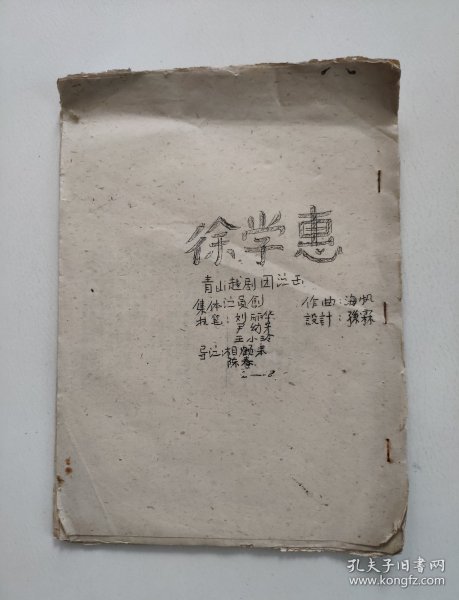 徐学惠
青山越剧团演出
集体演员创 作曲:海帆
执笔:刘丽华 設計:孫霖
尹幼苹
王小玲
导演:相願来
陈春
孔夫子旧书网
www.kongfz.com